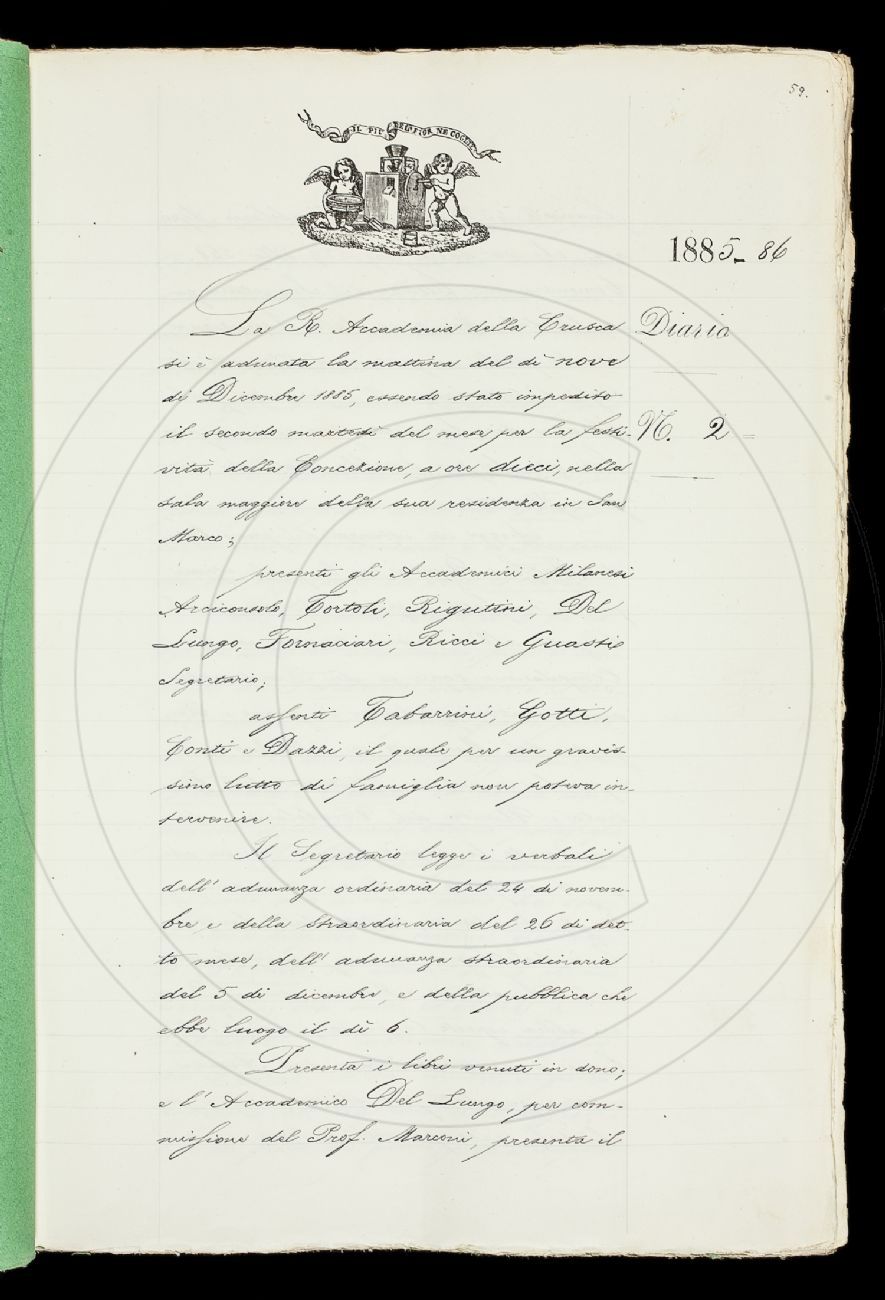 59.
IL PIÙ BEL FIOR NE COGLIE
1885-86
Diario
N. 2
La R. Accademia della Crusca
si è adunata la mattina del dì nove
di Dicembre 1885, essendo stato impedito
il secondo martedì del mese per la festi-
vità della Concezione, a ore dieci, nella
sala maggiore della sua residenza in San
Marco;
presenti gli Accademici Milanesi
Arciconsolo, Tortoli, Rigutini, Del
Lungo, Fornaciari, Ricci e Guasti
Segretario;
assenti Tabarrini, Gotti,
Conti e Dazzi, il quale per un gravis-
simo lutto di famiglia non poteva in-
tervenire.
Il Segretario legge i verbali
dell'adunanza ordinaria del 24 di novem-
bre e della straordinaria del 26 di det-
to mese, dell'adunanza straordinaria
del 5 di dicembre, e della pubblica che
ebbe luogo il dì 6.
Presenta i libri venuti in dono;
e l'Accademico Del Lungo, per com-
missione del Prof. Marconi, presenta il